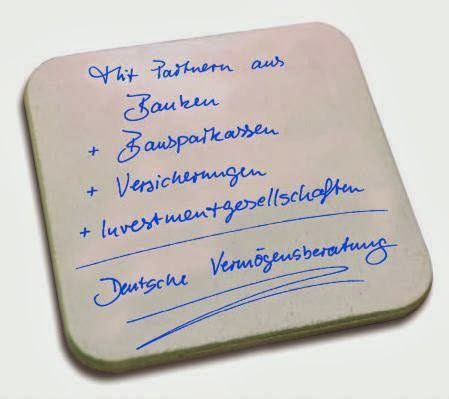 Mit Partnern aus
Banken
+ Bausparkassen
+ Versicherungen
+ Investmentgesellschaften
Deutsche Vermögensberatung